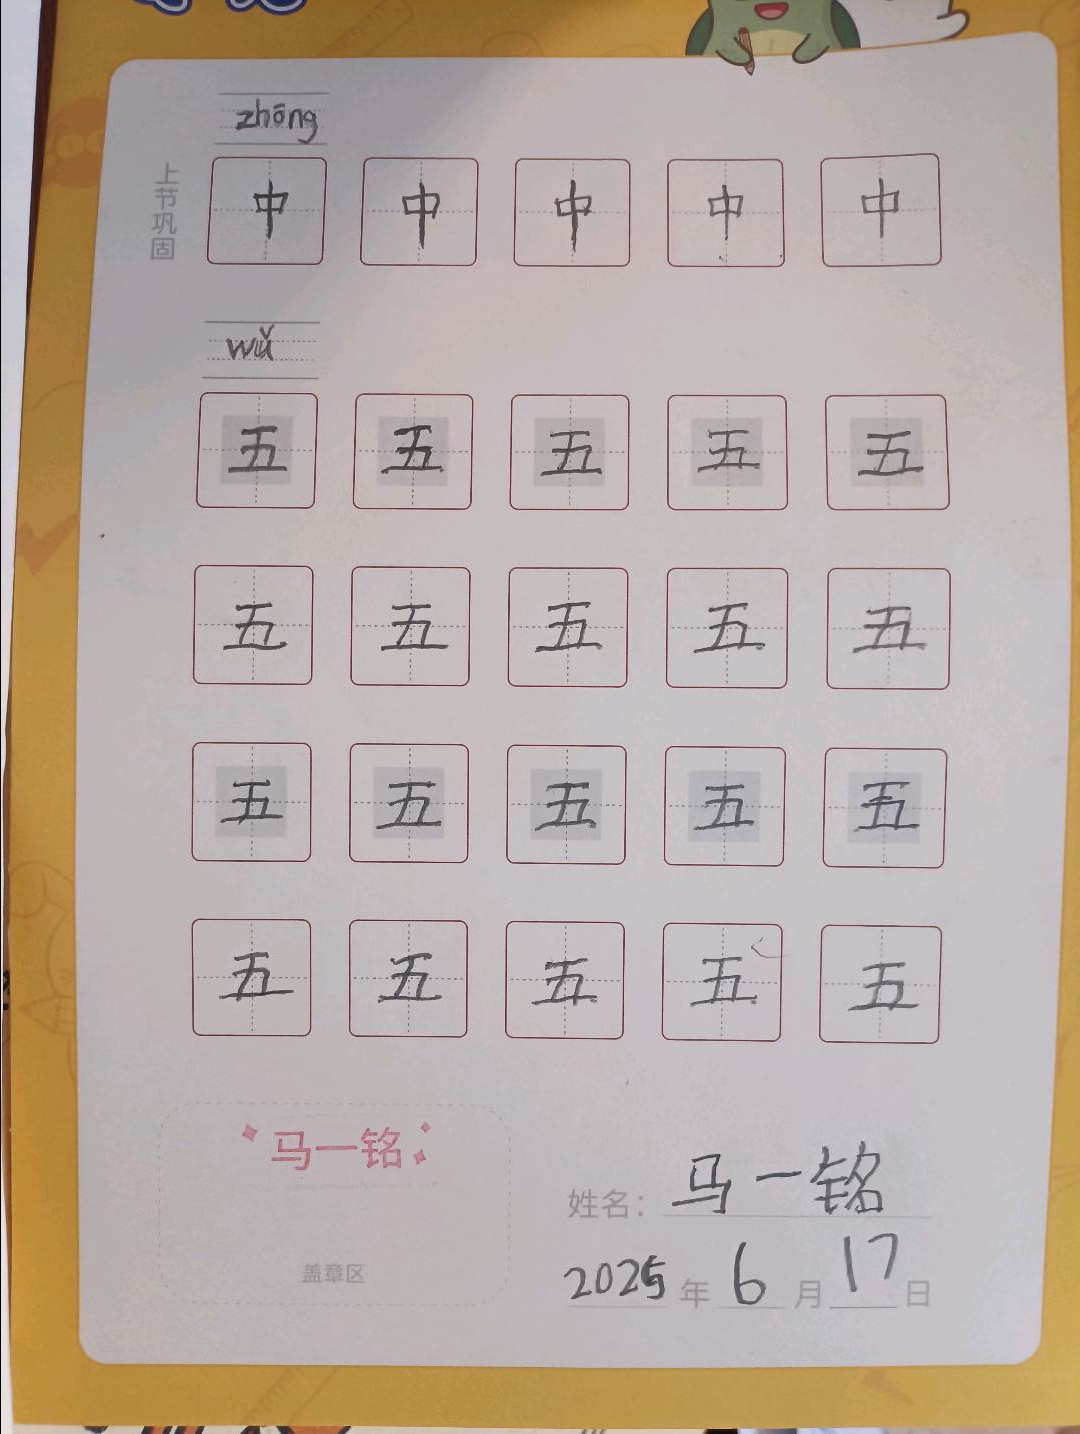 zhōng
上节巩固
中 中 中 中 中
wǔ
五 五 五 五 五
五 五 五 五 五
五 五 五 五 五
五 五 五 五 五
马一铭
盖章区
姓名: 马一铭
2025年 6月 17日